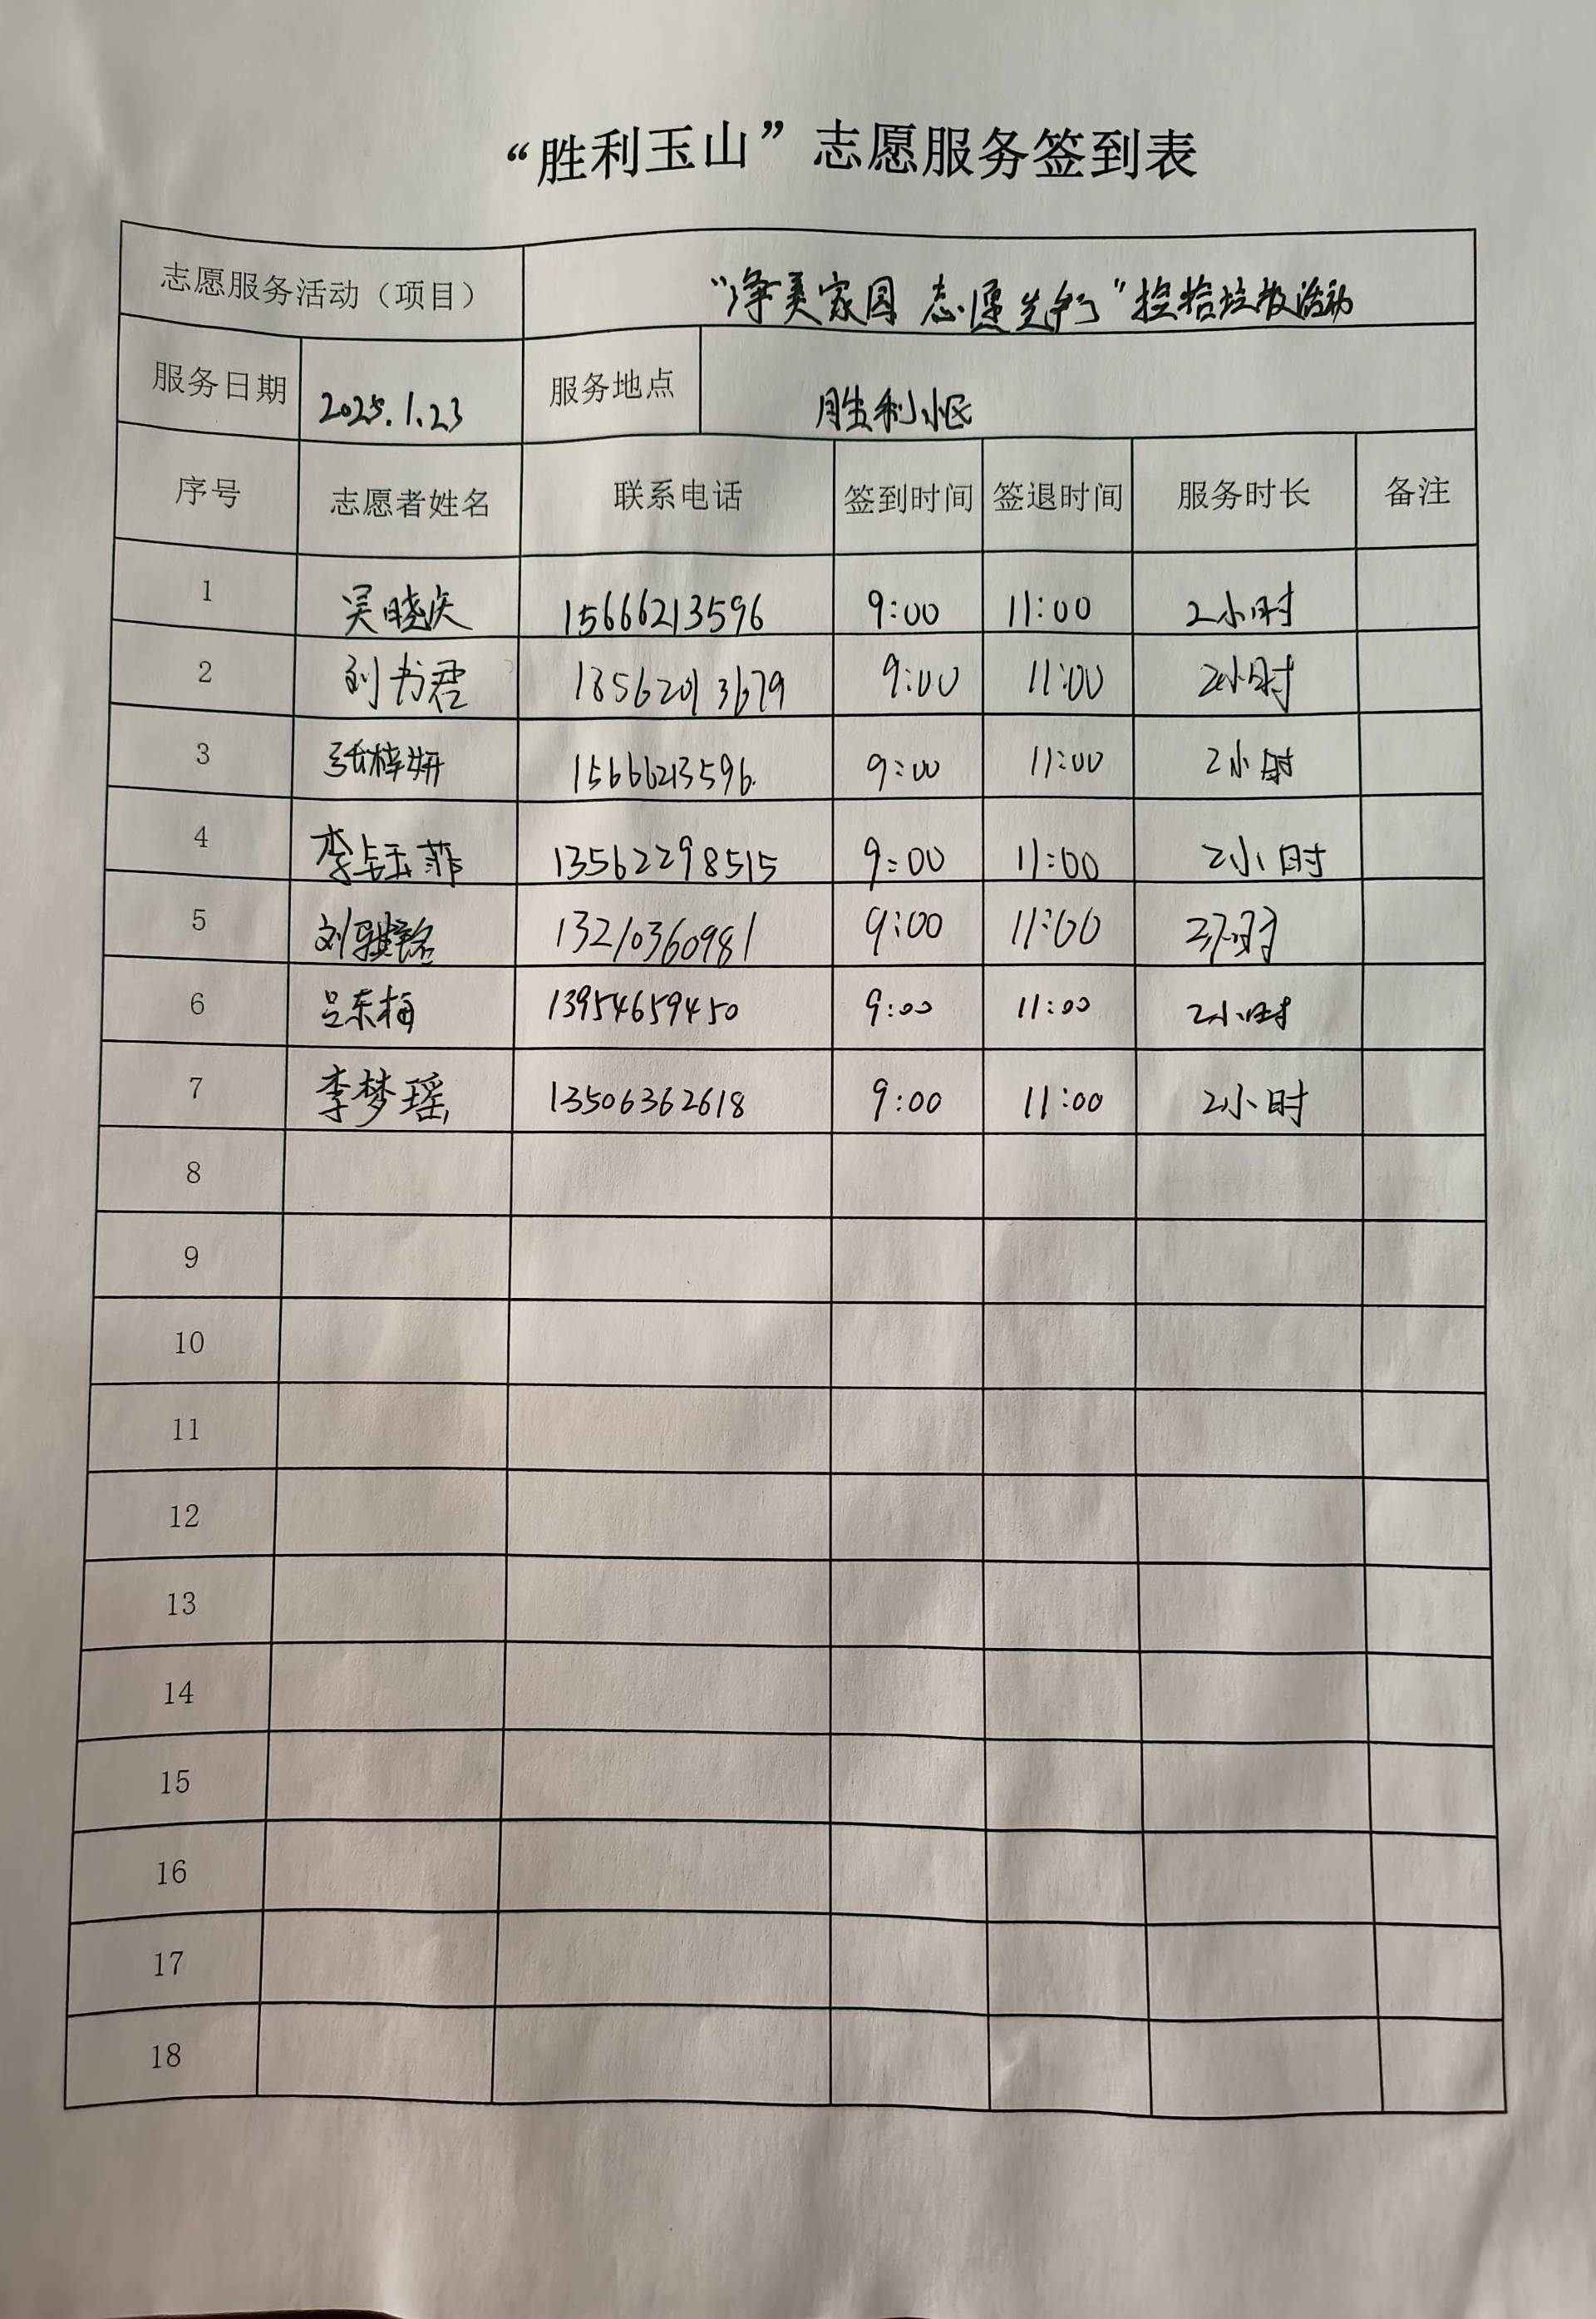 “胜利玉山”志愿服务签到表
志愿服务活动（项目） “净美家园 志愿先行”捡拾垃圾活动
服务日期 2025.1.23 服务地点 胜利小区
序号 志愿者姓名 联系电话 签到时间 签退时间 服务时长 备注
1 吴晓庆 15666213596 9:00 11:00 2小时
2 刘书君 13562013679 9:00 11:00 2小时
3 张梓妍 15666213596 9:00 11:00 2小时
4 李钰菲 13562298515 9:00 11:00 2小时
5 刘 13210360981 9:00 11:00 2小时
6 吕东梅 13954659450 9:00 11:00 2小时
7 李梦瑶 13506362618 9:00 11:00 2小时
8
9
10
11
12
13
14
15
16
17
18